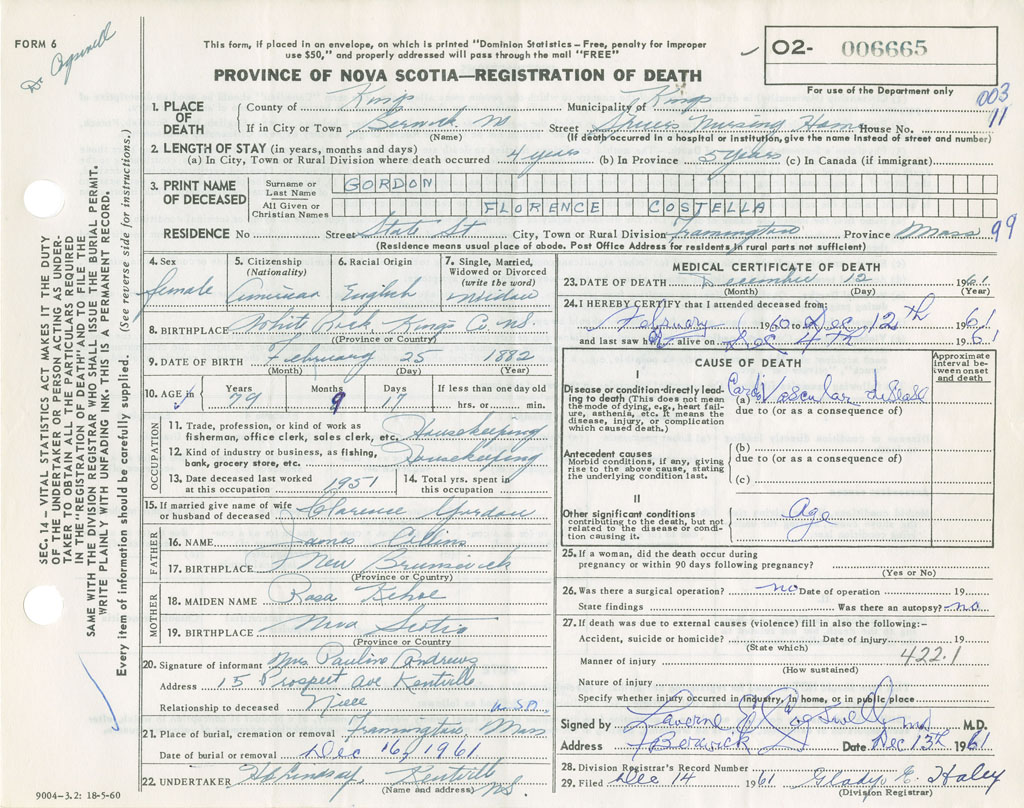 FORM 6
Dr Cogswell
This form, if placed in an envelope, on which is printed "Dominion Statistics – Free, penalty for improper
use $50," and properly addressed will pass through the mail "FREE"
02- 006665
PROVINCE OF NOVA SCOTIA—REGISTRATION OF DEATH
For use of the Department only
003
11
1. PLACE OF DEATH
County of Kings Municipality of Kings
If in City or Town Berwick (Name) Street Nursing Home House No.
(If death occurred in a hospital or institution, give the name instead of street and number)
2. LENGTH OF STAY (in years, months and days)
(a) In City, Town or Rural Division where death occurred 4 years (b) In Province 5 years (c) In Canada (if immigrant)
3. PRINT NAME OF DECEASED
Surname or Last Name GORDON
All Given or Christian Names FLORENCE COSTELLA
RESIDENCE No Street State St City, Town or Rural Division Framington Province Mass 99
(Residence means usual place of abode. Post Office Address for residents in rural parts not sufficient)
4. Sex female
5. Citizenship (Nationality) American
6. Racial Origin English
7. Single, Married, Widowed or Divorced (write the word) Widow
8. BIRTHPLACE White Rock, Kings Co. N.S.
(Province or Country)
9. DATE OF BIRTH February 25 1882
(Month) (Day) (Year)
10. AGE in Years 79 Months 9 Days 17 If less than one day old hrs. or min.
OCCUPATION
11. Trade, profession, or kind of work as fisherman, office clerk, sales clerk, etc. Housekeeping
12. Kind of industry or business, as fishing, bank, grocery store, etc. Housekeeping
13. Date deceased last worked at this occupation 1951
14. Total yrs. spent in this occupation
15. If married give name of wife or husband of deceased Clarence Gordon
FATHER
16. NAME James Collins
17. BIRTHPLACE New Brunswick
(Province or Country)
MOTHER
18. MAIDEN NAME Rosa Kehoe
19. BIRTHPLACE Nova Scotia
(Province or Country)
20. Signature of informant Mrs Pauline Andrews
Address 15 Prospect Ave Kentville
Relationship to deceased Niece
21. Place of burial, cremation or removal Framington, Mass
Date of burial or removal Dec 16, 1961
22. UNDERTAKER Lindsay Kentville N.S.
(Name and address)
MEDICAL CERTIFICATE OF DEATH
23. DATE OF DEATH December 12 1961
(Month) (Day) (Year)
24. I HEREBY CERTIFY that I attended deceased from:
February 1960 to Dec 12th 1961
and last saw h alive on Dec 4th 1961
CAUSE OF DEATH
Approximate interval between onset and death
I
Disease or condition directly leading to death (This does not mean the mode of dying, e.g., heart failure, asthenia, etc. It means the disease, injury, or complication which caused death.)
(a) Cardio Vascular disease
due to (or as a consequence of)
Antecedent causes
Morbid conditions, if any, giving rise to the above cause, stating the underlying condition last.
(b)
due to (or as a consequence of)
(c)
II
Other significant conditions contributing to the death, but not related to the disease or condition causing it.
Age
25. If a woman, did the death occur during pregnancy or within 90 days following pregnancy?
(Yes or No)
26. Was there a surgical operation? no Date of operation 19
State findings Was there an autopsy? no
27. If death was due to external causes (violence) fill in also the following:-
Accident, suicide or homicide? Date of injury 19
(State which)
422.1
Manner of injury
(How sustained)
Nature of injury
Specify whether injury occurred in industry, in home, or in public place
Signed by Laverne E Cogswell M.D.
Address Berwick Date Dec 13th 1961
28. Division Registrar's Record Number
29. Filed Dec 14 1961 Gladys E. Haley
(Division Registrar)
SEC. 14 – VITAL STATISTICS ACT MAKES IT THE DUTY
OF THE UNDERTAKER OR PERSON ACTING AS UNDER-
TAKER TO OBTAIN ALL THE PARTICULARS REQUIRED
IN THE "REGISTRATION OF DEATH" AND TO FILE THE
SAME WITH THE DIVISION REGISTRAR WHO SHALL ISSUE THE BURIAL PERMIT.
WRITE PLAINLY WITH UNFADING INK. THIS IS A PERMANENT RECORD.
Every item of information should be carefully supplied. (See reverse side for instructions.)
9004-3.2: 18-5-60